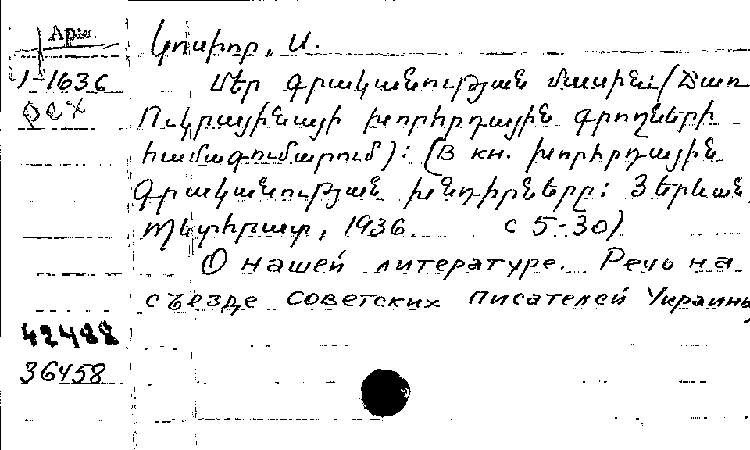 Арм
Կոսիոր, Ս.
1-1636
Մեր գրականության մասին: (Ճառ
Ուկրաինայի խորհրդային գրողների
համագումարում): (В кн. Խորհրդային
գրականության խնդիրները: Յերևան,
Պետհրատ, 1936. с 5-30)
О нашей литературе. Речь на
съезде советских писателей Украины
42488
36458